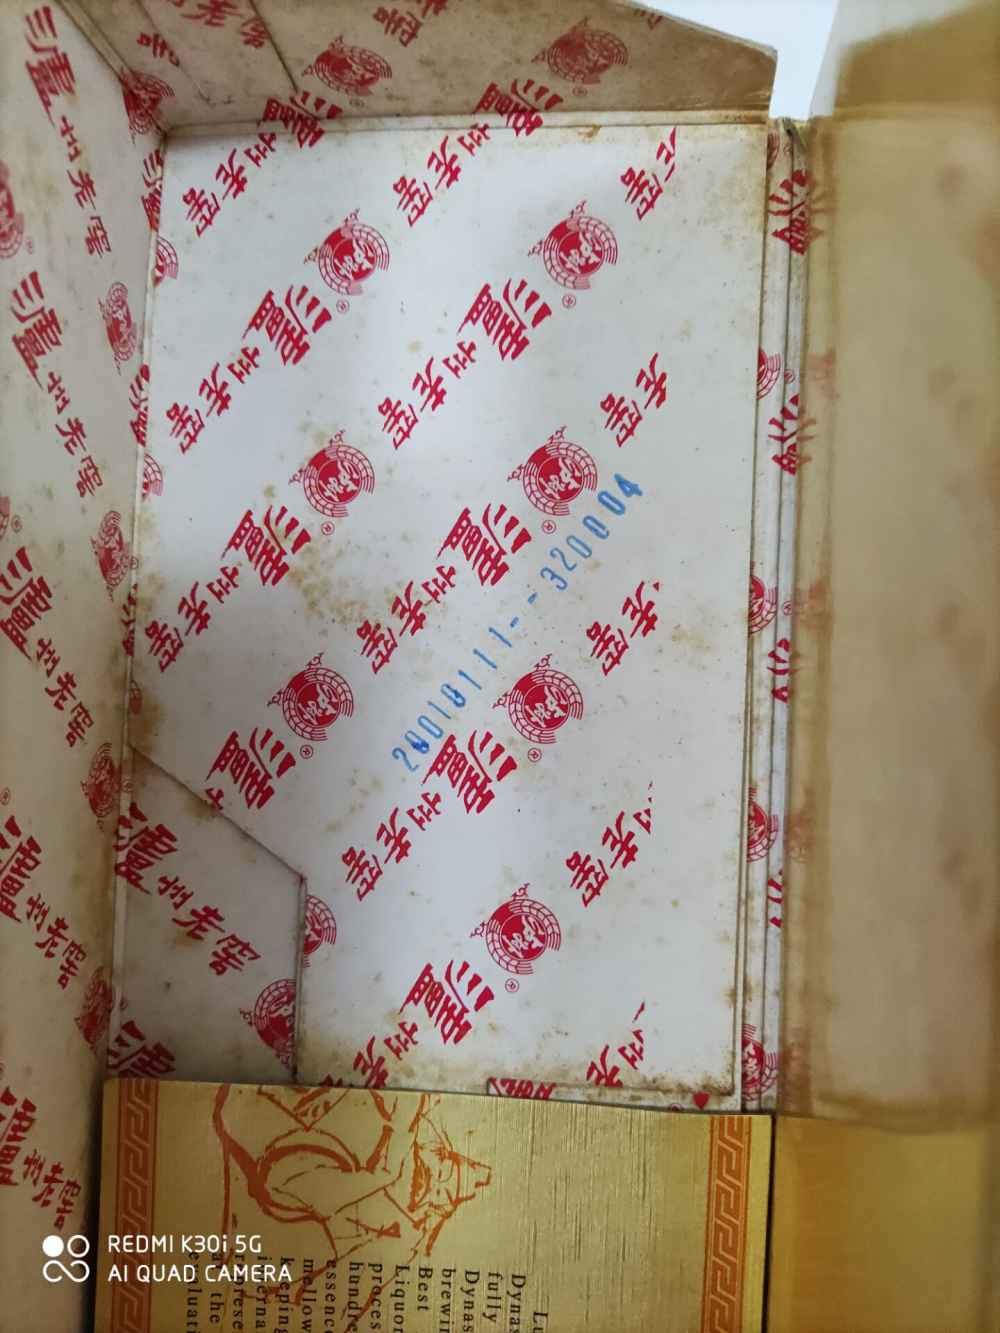 泸州老窖
泸州老窖
泸州老窖
泸州老窖
泸州老窖
泸州老窖
泸州老窖
泸州老窖
泸州老窖
泸州老窖
20010111--320004
Lu
Dynas
fully
Dynas
brewin
Best
Liquor
proces
hundre
essence
mellow
keeping
interna
represe
at the
evaluati
REDMI K30i 5G
AI QUAD CAMERA